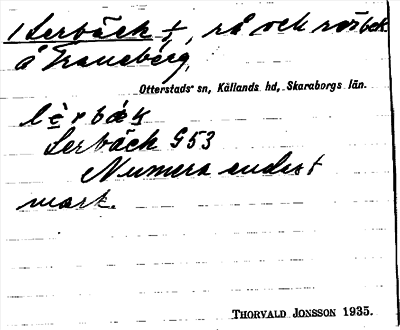 1 Lerbäck †, rå och rösbek.
å Traneberg,
Otterstads sn, Kållands hd, Skaraborgs län.
lè̱rbæ̀k
Lerbäck G53
Numera endast
mark.
THORVALD JONSSON 1935.